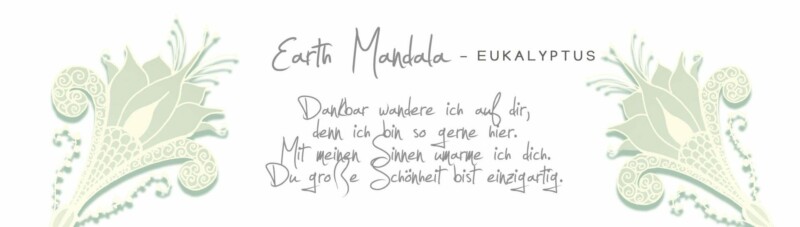 Earth Mandala - EUKALYPTUS
Dankbar wandere ich auf dir,
denn ich bin so gerne hier.
Mit meinen Sinnen umarme ich dich.
Du große Schönheit bist einzigartig.